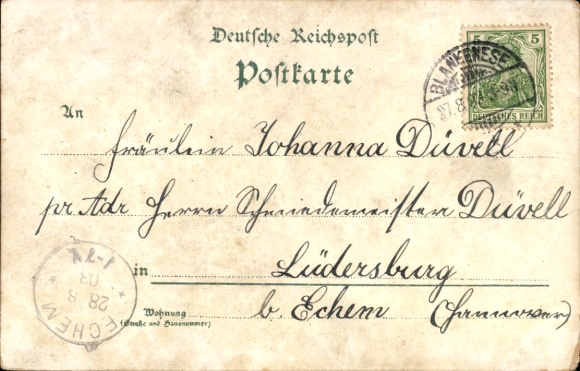 Deutsche Reichspost
Postkarte
5 5
DEUTSCHES REICH
BLANKENESE
27.8.
An
Fräulein Johanna Düvell
pr. Adr Herrn Schmiedemeister Düvell
in Lüdersburg
Wohnung b. Echem (Hannover)
(Straße und Hausnummer)
ECHEM
28 8
03
1-7V.